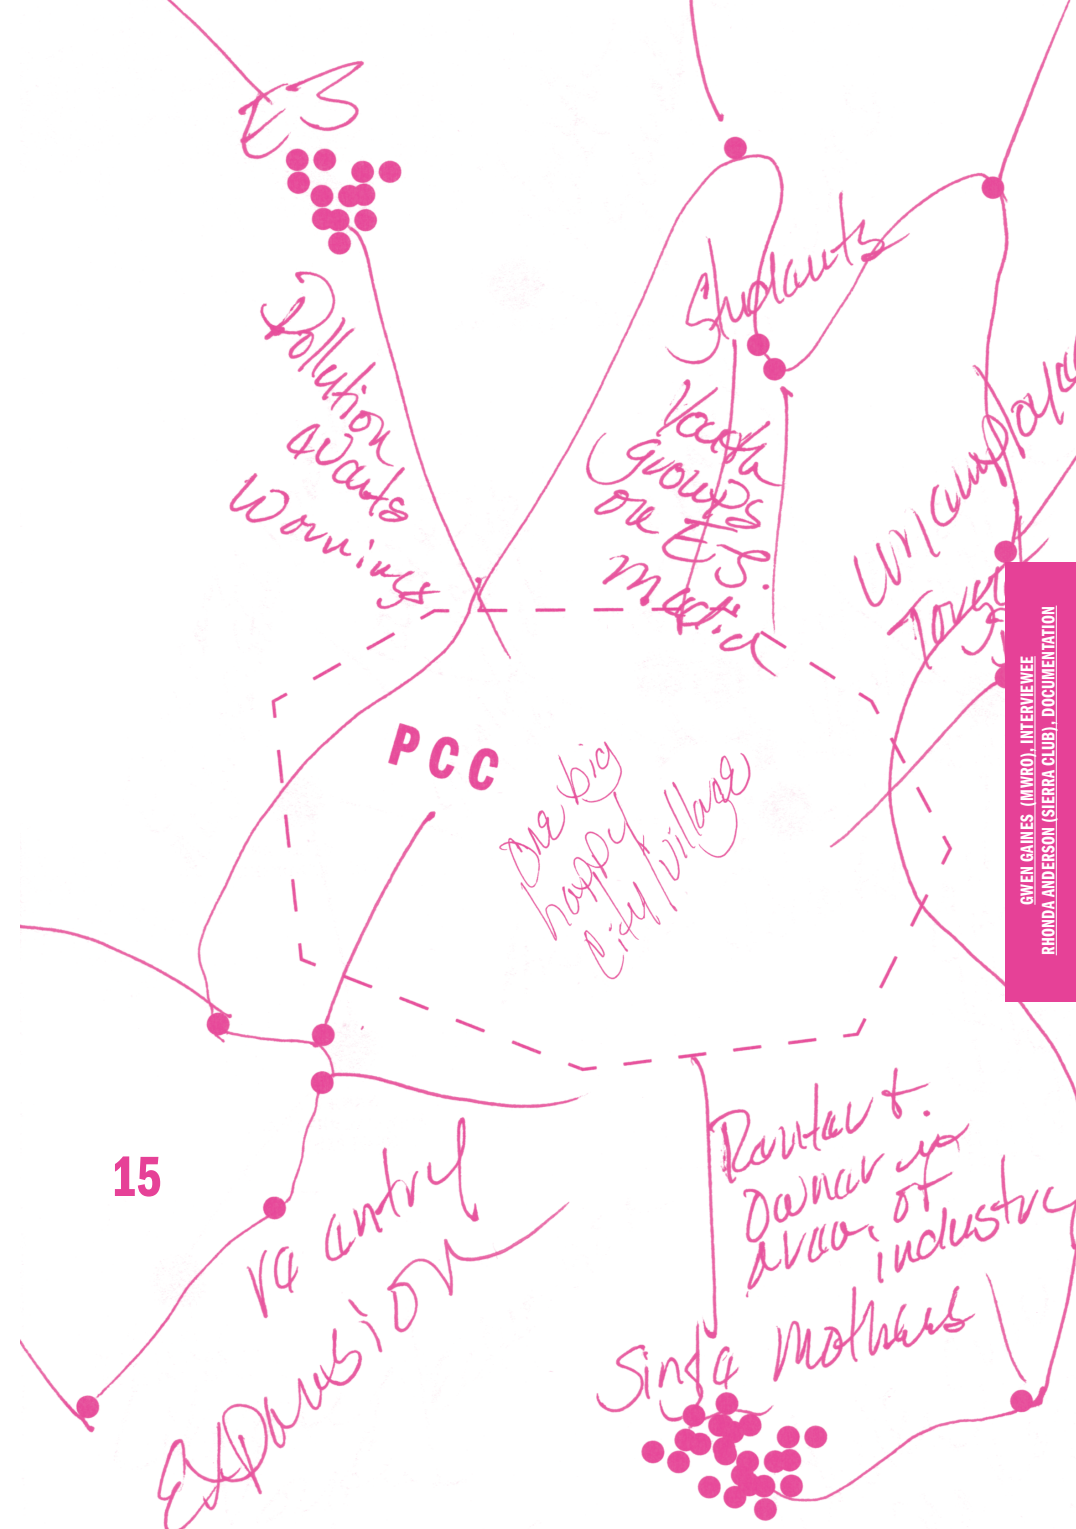 ES
Pollution
Events
Warnings
Students
Youth
groups
on E.S.
PCC
one big
happy
city/village
GWEN GAINES (MWRO), INTERVIEWEE
RHONDA ANDERSON (SIERRA CLUB), DOCUMENTATION
15
re entry
Expansion
Renter &
owner in
area of
industry
Single Mothers